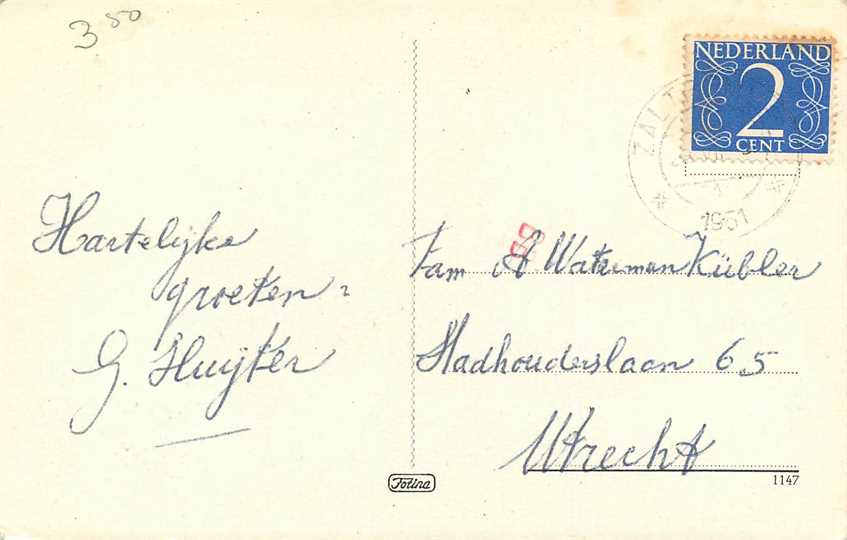 3 50
NEDERLAND
2
CENT
ZALT
1951
Hartelijke
groeten
G. Huijter
Fam A Wateman Kübler
Stadhouderslaan 65
Utrecht
Fotina
1147